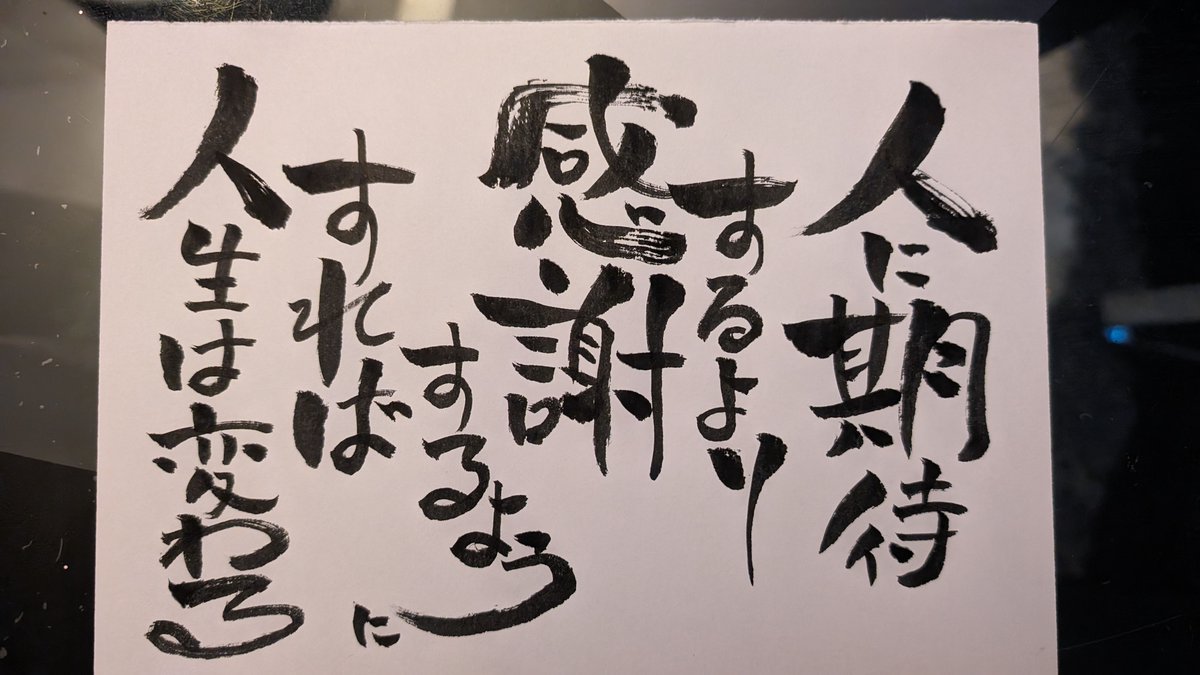 人に期待
するより
感謝
するように
すれば
人生は変わる